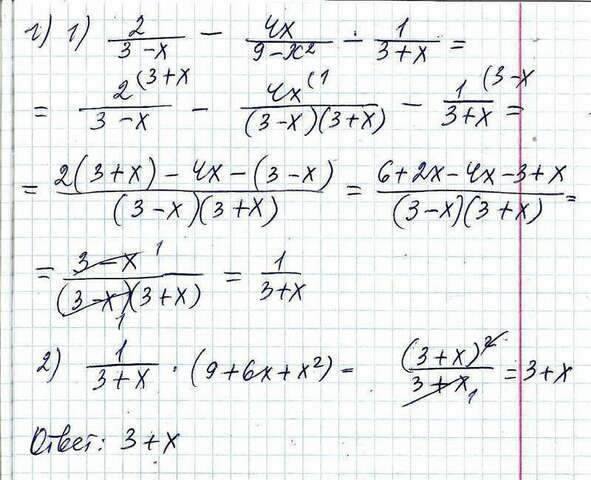 г) 1) 2/(3-x) - 4x/(9-x²) - 1/(3+x) =
= 2(3+x/(3-x) - 4x(1/((3-x)(3+x)) - 1(3-x/(3+x) =
= (2(3+x)-4x-(3-x))/((3-x)(3+x)) = (6+2x-4x-3+x)/((3-x)(3+x)) =
= (3-x)1/((3-x)1(3+x)) = 1/(3+x)
2) 1/(3+x) · (9+6x+x²) = (3+x)²/(3+x)1 = 3+x
Ответ: 3+x